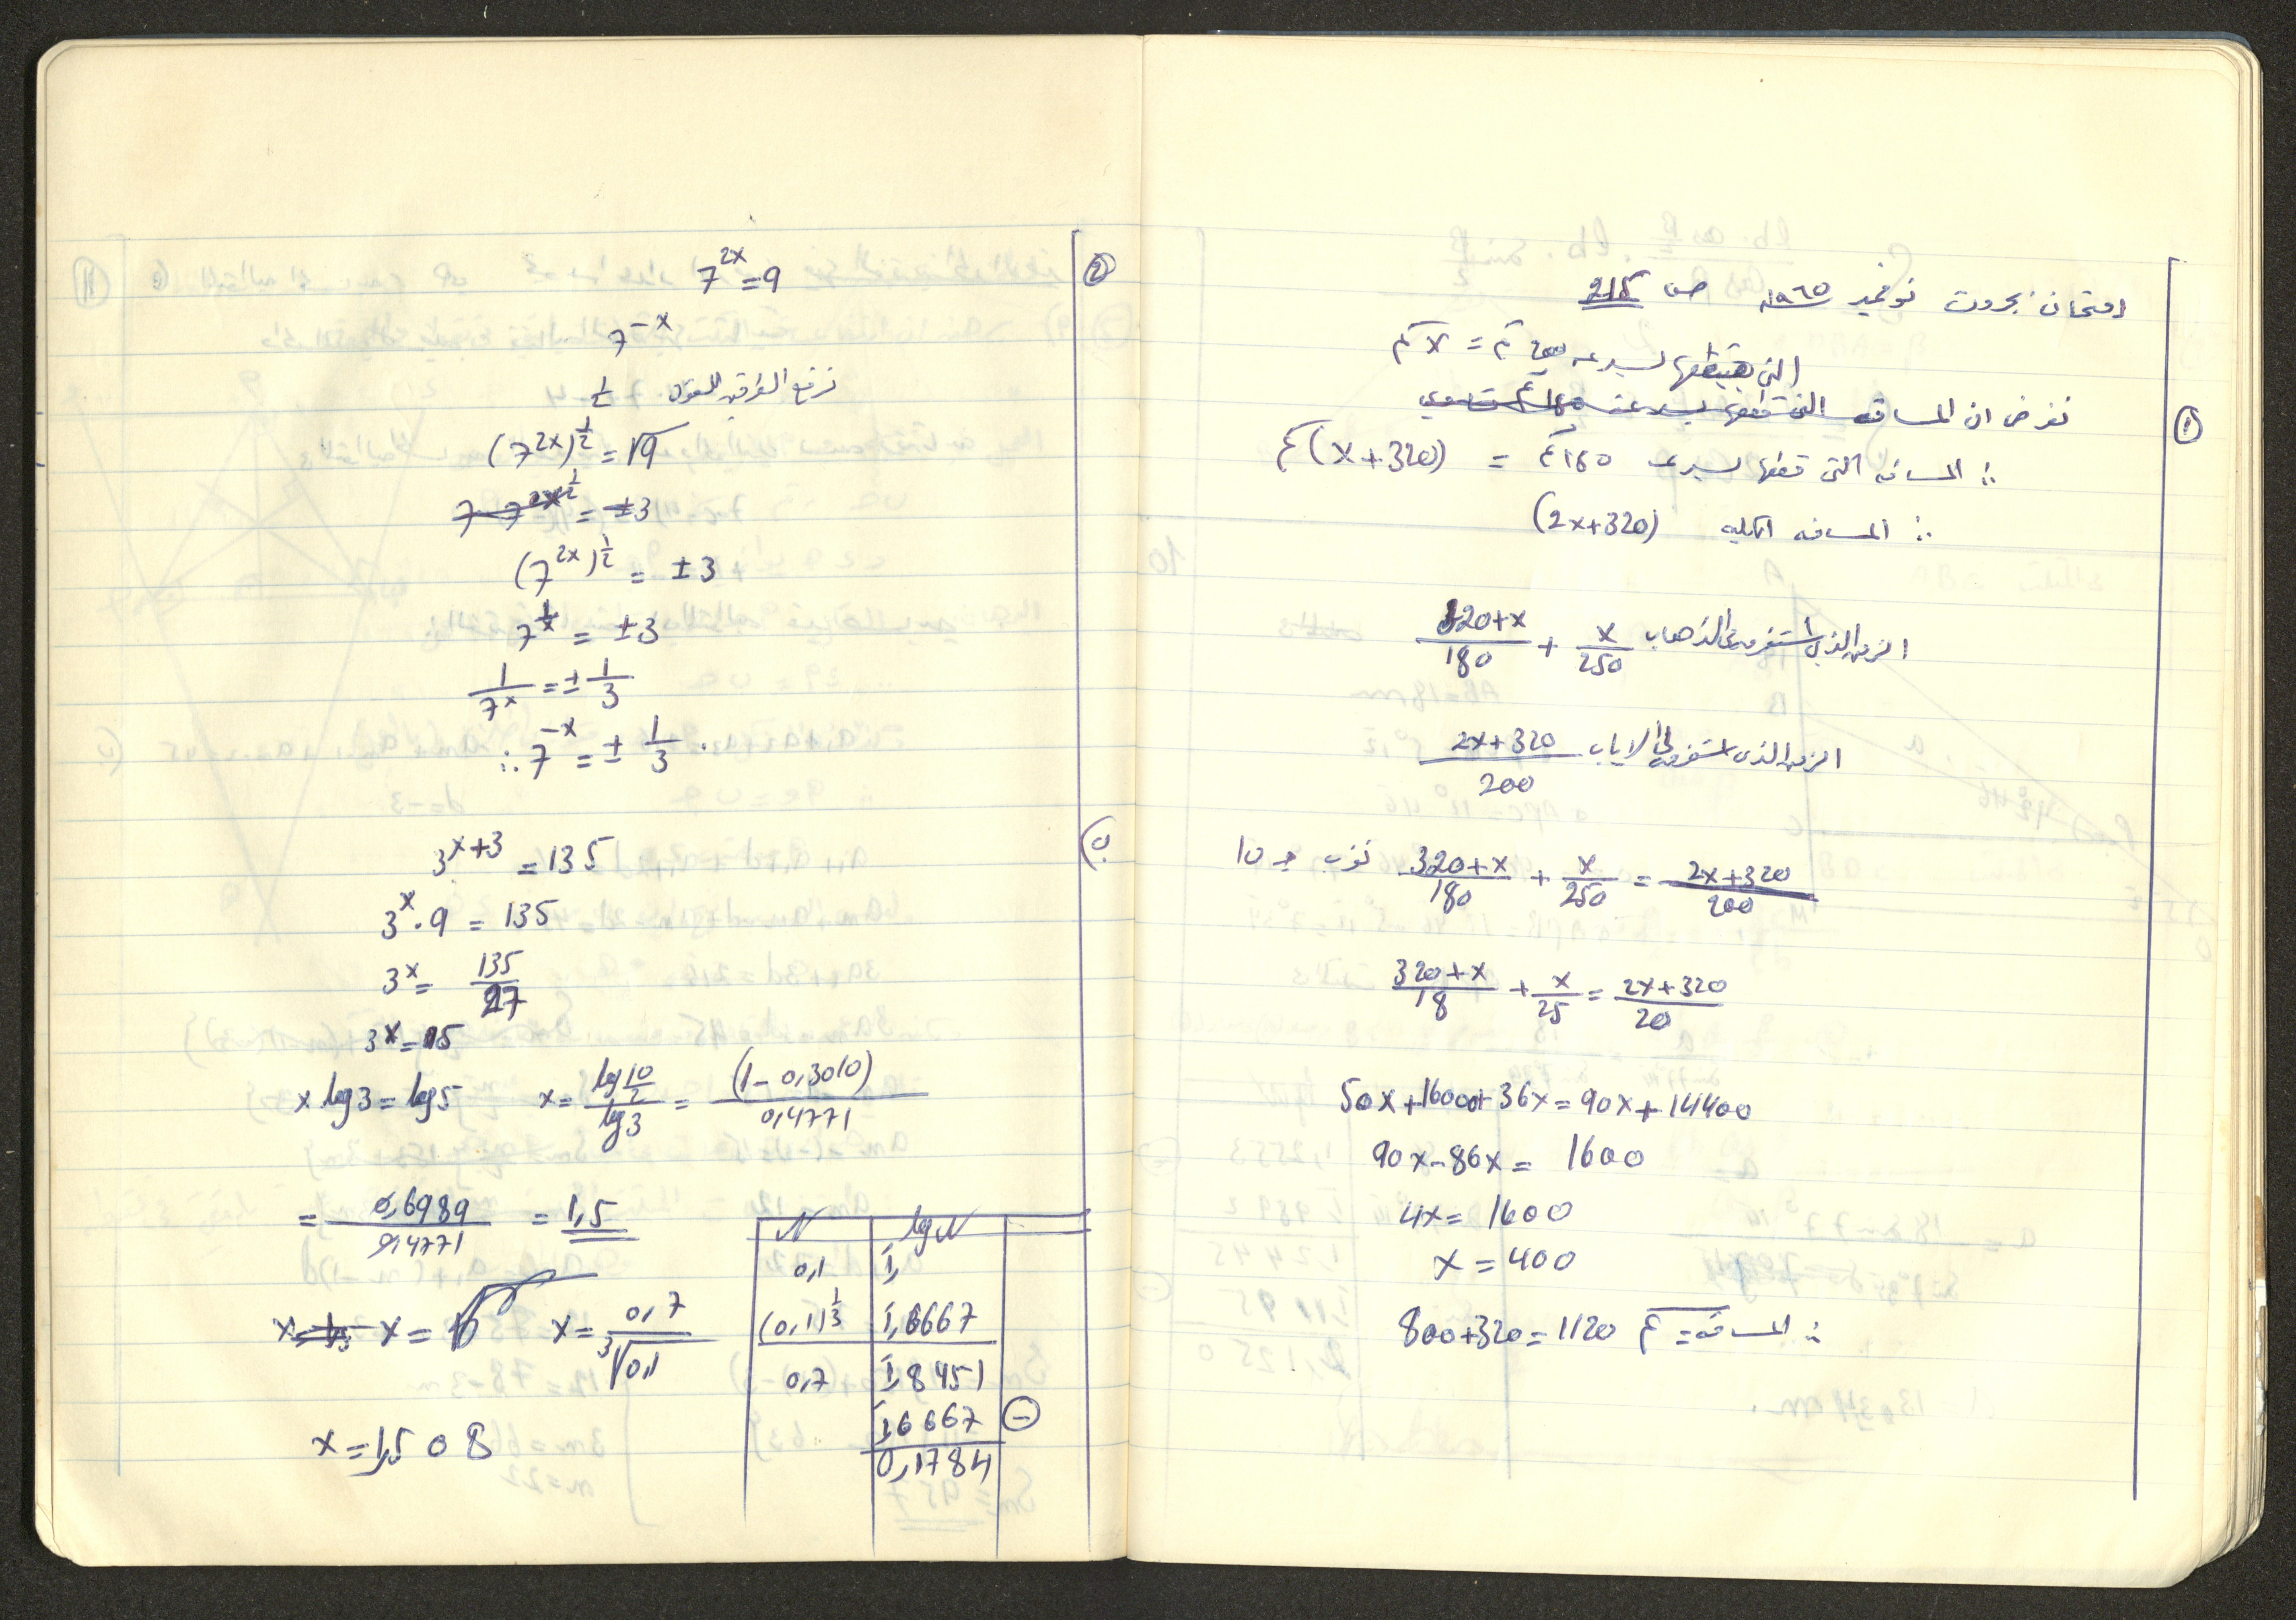 امتحان بجروت نوفمبر ١٩٦٥ ص 215
التي يقطعها بسرعة 200 كم = x كم
① نفرض ان المسافه التي قطعها بسرعة
∴ المسافه التي قطعها بسرعه 180 كم = (x+320) كم
∴ المسافه الكليه (2x+320)
الزمن الذي استغرقه في الذهاب \frac{320+x}{180} + \frac{x}{250}
الزمن الذي استغرقه في الاياب \frac{2x+320}{200}
\frac{320+x}{180} + \frac{x}{250} = \frac{2x+320}{200} نضرب بـ 10
\frac{320+x}{18} + \frac{x}{25} = \frac{2x+320}{20}
50x+16000+36x=90x+14400
90x-86x= 1600
4x= 1600
x = 400
∴ المسافه = 800+320=1120 كم
② 7^{2x}=9
7^{-x}
نرفع الطرفين للقوة \frac{1}{2}
(7^{2x})^{\frac{1}{2}}=√9
7 7^{2x \frac{1}{2}} = ±3
(7^{2x})^{\frac{1}{2}} = ±3
7^{x} = ±3
\frac{1}{7^{x}} = ±\frac{1}{3}
∴ 7^{-x} = ± \frac{1}{3}.
3^{x+3} = 135
3^{x}.9 = 135
3^{x}= \frac{135}{27}
3^{x}=5
x log3 = log5 x= \frac{log\frac{10}{2}}{log3} = \frac{(1-0,3010)}{0,4771}
= \frac{0,6989}{0,4771} = 1,5
x = x= \frac{0,7}{∛0,1}
x=1,508
N log N
0,1 1̄,
(0,1)^{\frac{1}{3}} 1̄,6667
0,7 1̄,8451
1̄,6667 ⊖
0,1784